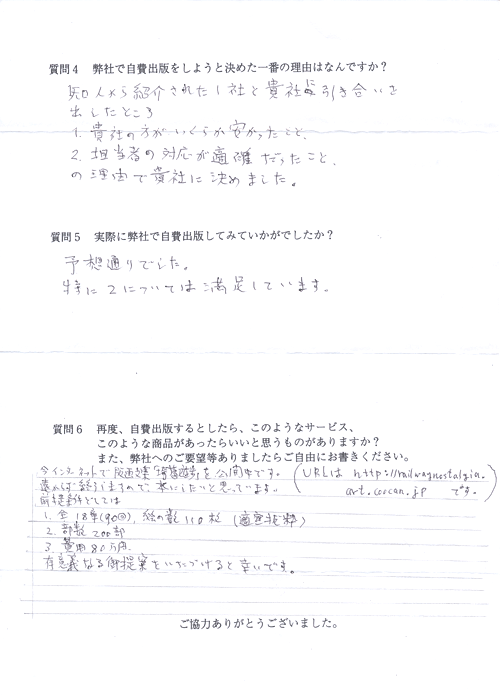 質問4 弊社で自費出版をしようと決めた一番の理由はなんですか?
知人から紹介された1社と貴社に引き合いを
出したところ
1. 貴社の方がいくらか安かったこと、
2. 担当者の対応が適確だったこと、
の理由で貴社に決めました。
質問5 実際に弊社で自費出版してみていかがでしたか?
予想通りでした。
特に2については満足しています。
質問6 再度、自費出版するとしたら、このようなサービス、
このような商品があったらいいと思うものがありますか?
また、弊社へのご要望等ありましたらご自由にお書きください。
今インターネットで を公開中です。
(URLは http://railwaynostalgia.
art.coocan.jp です。)
終りますので、本にしたいと思っています。
前提条件としては
1. 全18章(90回)、絵の数110枚(適宜抜粋)
2. 部数200部
3. 費用80万円
有意義なる御提案をいただけると幸いです。
ご協力ありがとうございました。